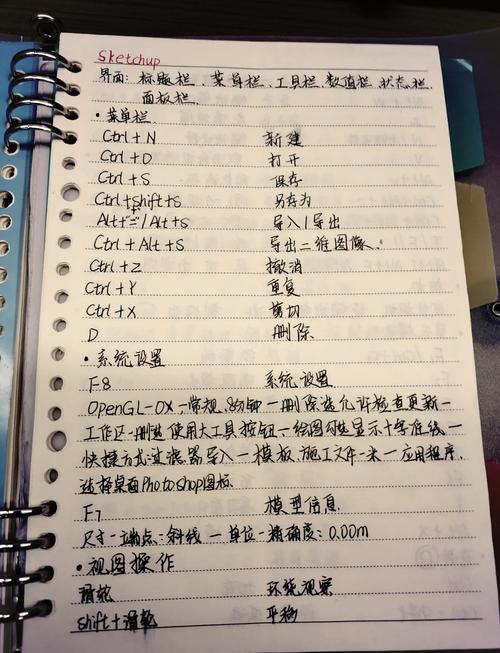 Sketchup
界面：标题栏、菜单栏、工具栏、数值栏、状态栏、
面板栏.
·菜单栏
Ctrl+N 新建
Ctrl+O 打开
Ctrl+S 保存
Ctrl+shift+S 另存为
Alt+I/Alt+S 导入/导出
Ctrl+Alt+S 导出二维图像.
Ctrl+Z 撤消
Ctrl+Y 重复
Ctrl+X 剪切
D 删除
·系统设置
F8 系统设置
OpenGL-OX，常规，8分钟一删除选允许检查更新一
工作区-删选使用大工具按钮、绘图勾选显示十字准线一
快捷方式过滤器导入一模板、施工文件-米一应用程序.
选择桌面Photoshop图标
F7 模型信息
尺寸-端点-斜线一单位-精确度：0.00m
·视图操作
滑轮 环绕观察
shift+滑轮 平移